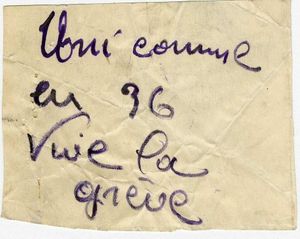 Uni comme
en 36
Vive la
grève